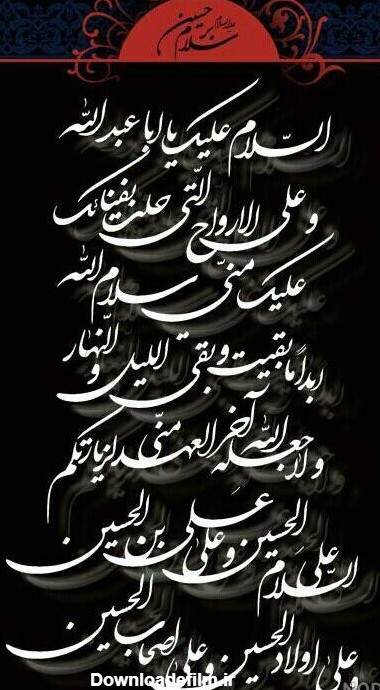 سلام بر حسین علیه‌السلام
السّلام علیک یا ابا عبد الله
و علی الارواح الّتی حلّت بفنائک
علیک منّی سلام الله
ابداً ما بقیت و بقی اللیل و النّهار
و لا جعله الله آخر العهد منّی لزیارتکم
السّلام علی الحسین و علی علی بن الحسین
و علی اولاد الحسین و علی اصحاب الحسین
Downloadefilm.ir